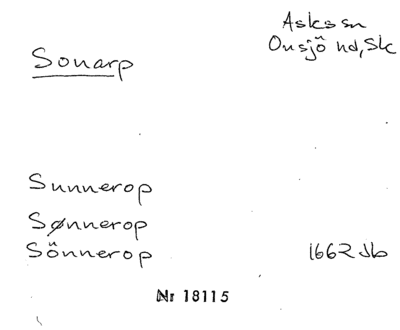 Asks sn
Onsjö hd, Sk
Sonarp
Sunnerop
Sønnerop
Sönnerop 1662 Jb
Nr 18115